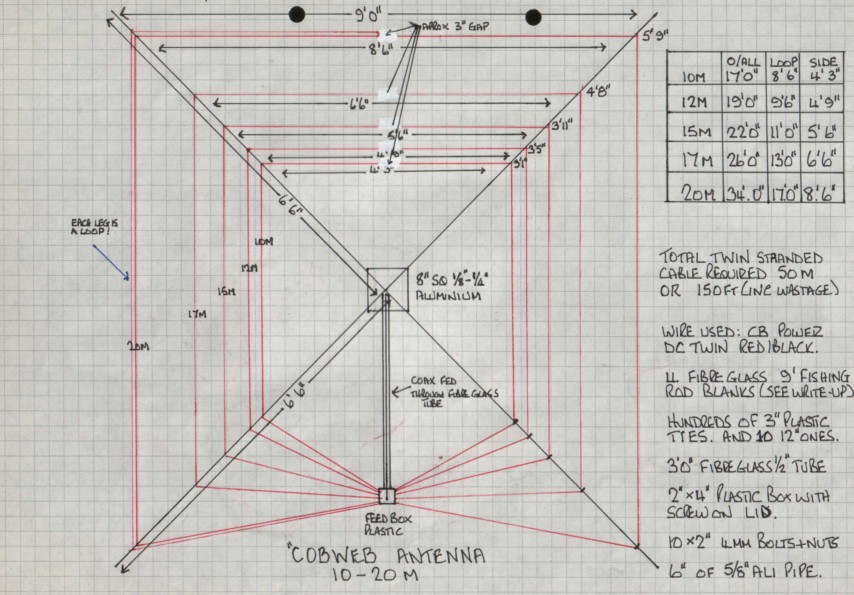 9'0"
APROX 3" GAP
5'9"
8'6"
4'8"
6'6"
3'11"
5'6"
3'5"
4'9"
3'1"
4'3"
6'6"
EACH LEG IS
A LOOP!
10M
12M
15M
17M
20M
8" SQ 1/8"-1/4"
ALUMINIUM
6'6"
COAX FED
THROUGH FIBREGLASS
TUBE
FEED BOX
PLASTIC
"COBWEB ANTENNA
10-20 M
O/ALL LOOP SIDE
10M 17'0" 8'6" 4'3"
12M 19'0" 9'6" 4'9"
15M 22'0" 11'0" 5'6"
17M 26'0" 13'0" 6'6"
20M 34'.0" 17'0" 8'6"
TOTAL TWIN STRANDED
CABLE REQUIRED 50M
OR 150FT (INC WASTAGE)
WIRE USED: CB POWER
DC TWIN RED/BLACK.
4 FIBREGLASS 9' FISHING
ROD BLANKS (SEE WRITE-UP)
HUNDREDS OF 3" PLASTIC
TIES. AND 10 12" ONES.
3'0" FIBREGLASS 1/2" TUBE
2"x4" PLASTIC BOX WITH
SCREW ON LID.
10 x2" 4MM BOLTS+NUTS
6" OF 5/8" ALI PIPE.